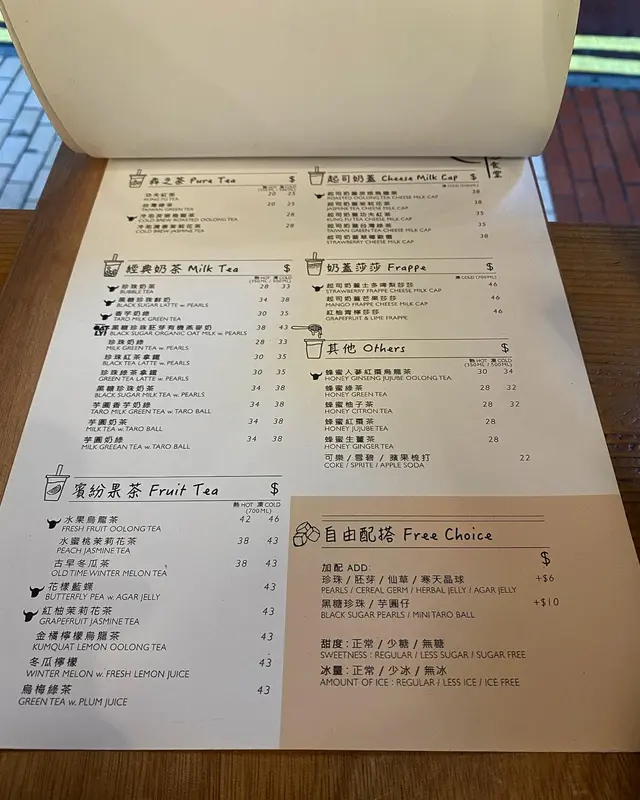 食堂
森之茶 Pure Tea $
熱 HOT 凍 COLD
功夫紅茶 20 25
KUNG FU TEA
台灣綠茶 20 25
TAIWAN GREEN TEA
冷泡炭焙烏龍茶 28
COLD BREW ROASTED OOLONG TEA
冷泡清香茉莉花茶 28
COLD BREW JASMINE TEA
起司奶蓋 Cheese Milk Cap $
凍 COLD (500ML)
起司奶蓋炭焙烏龍茶 38
ROASTED OOLONG TEA CHEESE MILK CAP
起司奶蓋茉莉花茶 38
JASMINE TEA CHEESE MILK CAP
起司奶蓋功夫紅茶 35
KUNG FU TEA CHEESE MILK CAP
起司奶蓋台灣綠茶 35
TAIWAN GREEN TEA CHEESE MILK CAP
起司奶蓋草莓歐蕾 38
STRAWBERRY CHEESE MILK CAP
經典奶茶 Milk Tea $
熱 HOT 凍 COLD
(350ML / 500ML)
珍珠奶茶 28 33
BUBBLE TEA
黑糖珍珠鮮奶 34 38
BLACK SUGAR LATTE w. PEARLS
香芋奶綠 30 35
TARO MILK GREEN TEA
黑糖珍珠胚芽有機燕麥奶 38 43
BLACK SUGAR ORGANIC OAT MILK w. PEARLS
珍珠奶綠 28 33
MILK GREEN TEA w. PEARLS
珍珠紅茶拿鐵 30 35
BLACK TEA LATTE w. PEARLS
珍珠綠茶拿鐵 30 35
GREEN TEA LATTE w. PEARLS
黑糖珍珠奶茶 34 38
BLACK SUGAR MILK TEA w. PEARLS
芋圓香芋奶綠 34 38
TARO MILK GREEN TEA w. TARO BALL
芋圓奶茶 34 38
MILK TEA w. TARO BALL
芋圓奶綠 34 38
MILK GREEAN TEA w. TARO BALL
奶蓋莎莎 Frappe $
凍 COLD (700ML)
起司奶蓋士多啤梨莎莎 46
STRAWBERRY FRAPPE CHEESE MILK CAP
起司奶蓋芒果莎莎 46
MANGO FRAPPE CHEESE MILK CAP
紅柚青檸莎莎 46
GRAPEFRUIT & LIME FRAPPE
其他 Others $
熱 HOT 凍 COLD
(350ML / 500ML)
蜂蜜人蔘紅棗烏龍茶 30 34
HONEY GINSENG JUJUBE OOLONG TEA
蜂蜜綠茶 28 32
HONEY GREEN TEA
蜂蜜柚子茶 28 32
HONEY CITRON TEA
蜂蜜紅棗茶 28
HONEY JUJUBE TEA
蜂蜜生薑茶 28
HONEY GINGER TEA
可樂 / 雪碧 / 蘋果梳打 22
COKE / SPRITE / APPLE SODA
繽紛果茶 Fruit Tea $
熱 HOT 凍 COLD
(700ML)
水果烏龍茶 42 46
FRESH FRUIT OOLONG TEA
水蜜桃茉莉花茶 38 43
PEACH JASMINE TEA
古早冬瓜茶 38 43
OLD TIME WINTER MELON TEA
花樣藍蝶 43
BUTTERFLY PEA w. AGAR JELLY
紅柚茉莉花茶 43
GRAPEFRUIT JASMINE TEA
金橘檸檬烏龍茶 43
KUMQUAT LEMON OOLONG TEA
冬瓜檸檬 43
WINTER MELON w. FRESH LEMON JUICE
烏梅綠茶 43
GREEN TEA w. PLUM JUICE
自由配搭 Free Choice
加配 ADD: $
珍珠 / 胚芽 / 仙草 / 寒天晶球 +$6
PEARLS / CEREAL GERM / HERBAL JELLY / AGAR JELLY
黑糖珍珠 / 芋圓仔 +$10
BLACK SUGAR PEARLS / MINI TARO BALL
甜度 : 正常 / 少糖 / 無糖
SWEETNESS : REGULAR / LESS SUGAR / SUGAR FREE
冰量 : 正常 / 少冰 / 無冰
AMOUNT OF ICE : REGULAR / LESS ICE / ICE FREE